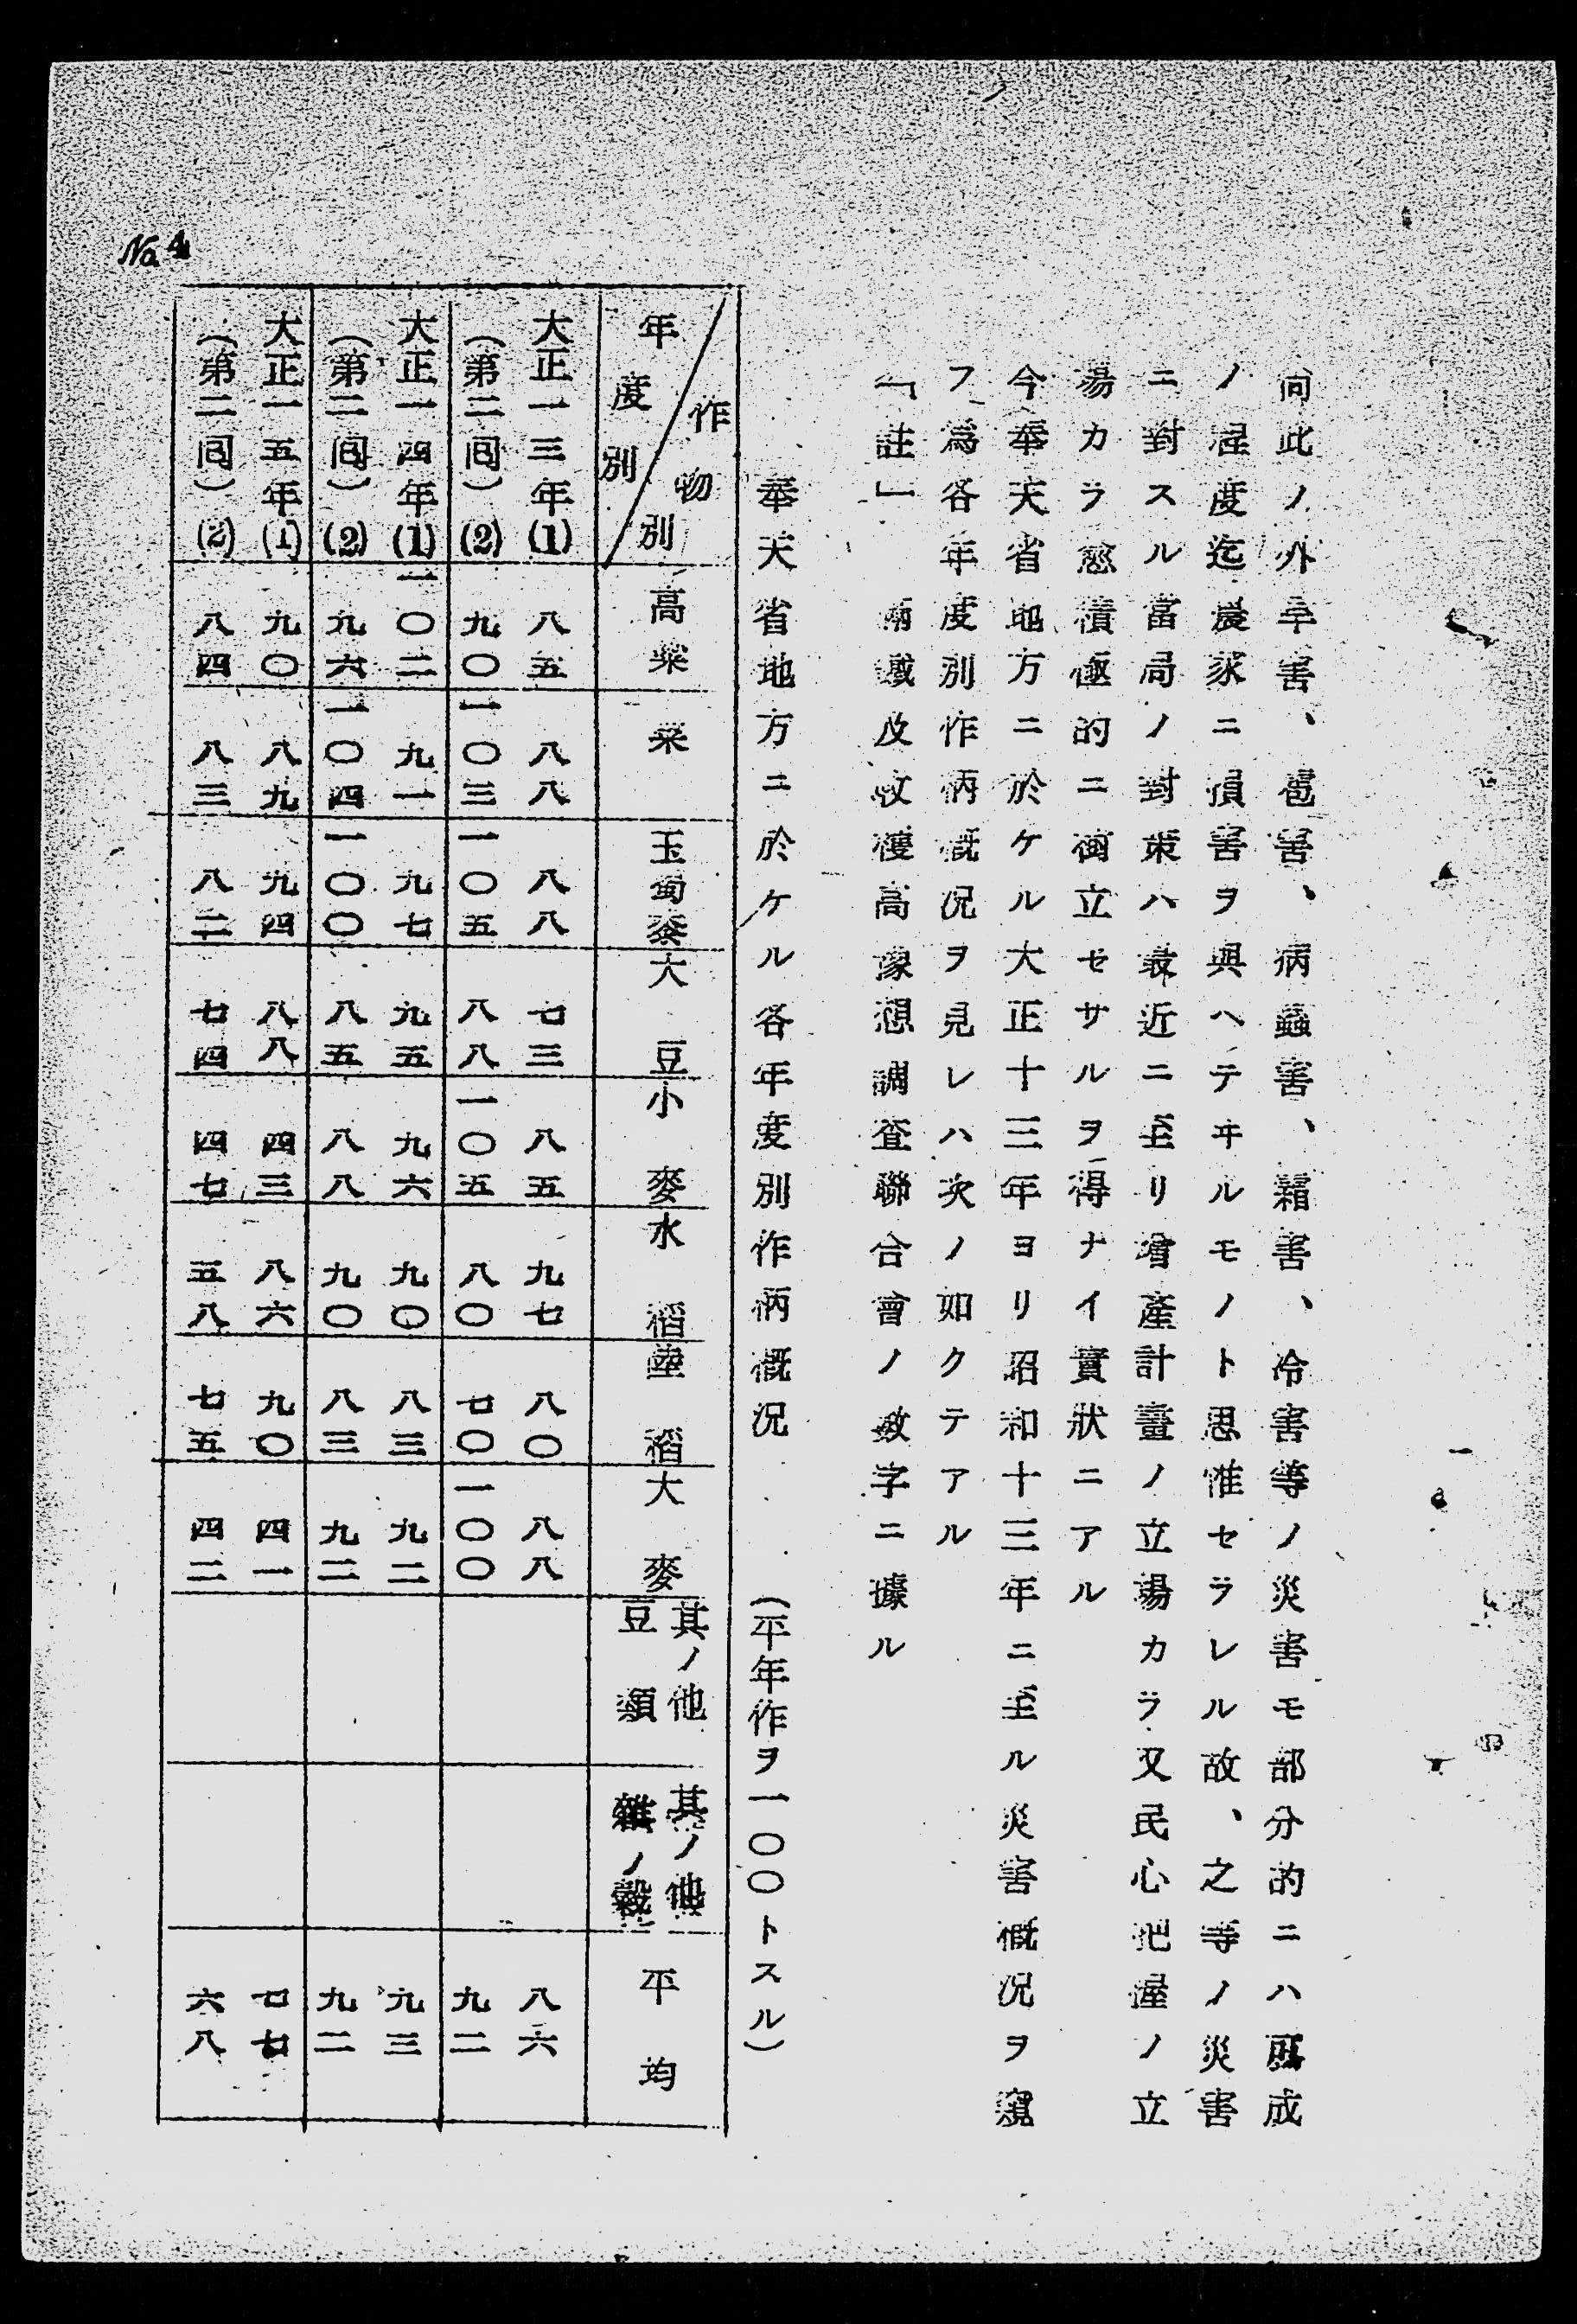 尚此ノ外旱害、雹害、病蟲害、霜害、冷害等ノ災害モ部分的ニハ可成
ノ程度迄農家ニ損害ヲ與ヘテヰルモノト思惟セラレル故、之等ノ災害
ニ對スル當局ノ對策ハ最近ニ至リ增產計畫ノ立場カラ又民心把握ノ立
場カラ愈積極的ニ樹立セサルヲ得ナイ實狀ニアル
今奉天省地方ニ於ケル大正十三年ヨリ昭和十三年ニ至ル災害概況ヲ窺
フ爲各年度別作柄概況ヲ見レハ次ノ如クテアル
「註」 兩域及收穫高豫想調査聯合會ノ數字ニ據ル
奉天省地方ニ於ケル各年度別作柄概況 (平年作ヲ一〇〇トスル)
作物別 年度別 高粱 粟 玉蜀黍 大豆 小麥 水稻 陸稻 大麥 其ノ他豆類 其ノ他雜穀 平均
大正一三年(1) 八五 八八 八八 七三 八五 九七 八〇 八八 八六
(第二回)(2) 九〇 一〇三 一〇五 八八 一〇五 八〇 七〇 一〇〇 九二
大正一四年(1) 一〇二 九一 九七 九五 九六 九〇 八三 九二 九三
(第二回)(2) 九六 一〇四 一〇〇 八五 八八 九〇 八三 九二 九二
大正一五年(1) 九〇 八九 九四 八八 四三 八六 九〇 四一 七七
(第二回)(2) 八四 八三 八二 七四 四七 五八 七五 四二 六八
No. 4